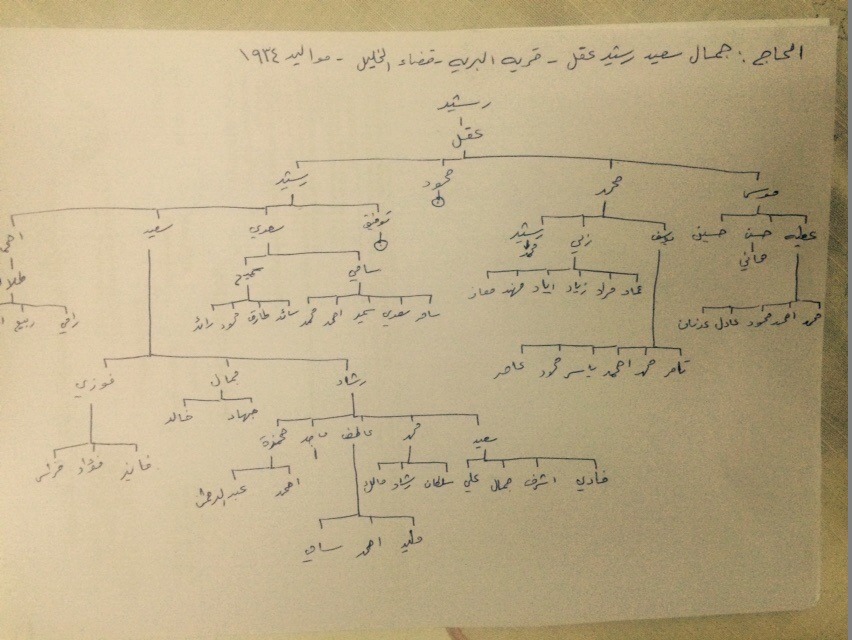 الحاج : جمال سعيد رشيد عقل - قريه البريه - قضاء الخليل - مواليد ١٩٣٤
رشيد
عقل
موسى محمد محمود رشيد
عطيه حسن حسين رشيد توفيق سعدي سعيد
هاني زكي محمد سامي سميح
عماد مراد زياد اياد مهند معاذ
سامر سعدي سمير احمد محمد سائد طارق محمود رائد رامي ربيع
حمد احمد محمود عادل عدنان
ثامر محمد احمد ياسر محمود عامر
رشاد جمال فوزي
جهاد خالد
سعيد محمد عاطف ماجد حمزة
فايز فؤاد فراس
فادي اشرف جمال علي سلطان رشاد مالك احمد عبد الرحمن
وليد احمد سامي